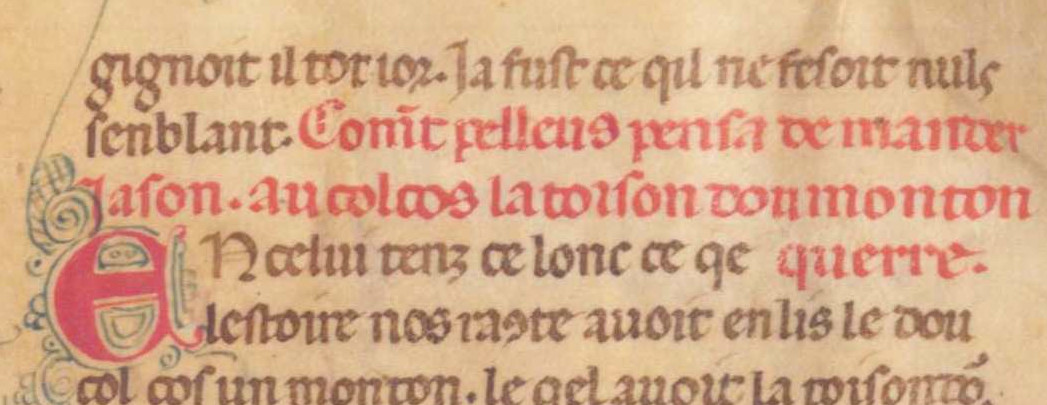 gignoit il tot ior. Ja fust ce qil ne fesoit nuls
senblant. Coment pelleus pensa de mander
Jason. au colcos la toison dou monton
EN celui tenz ce lonc ce qe querre.
lestoire nos raconte auoit en lisle dou
colcos un monton. le qel auoit la toison